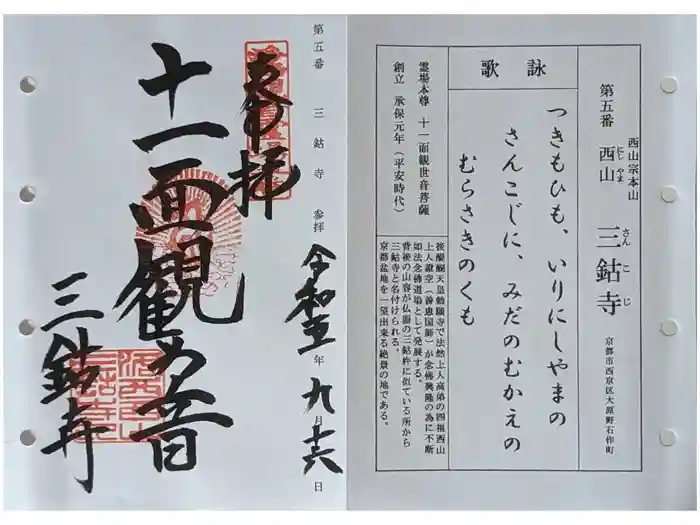 西山宗本山
第五番 西山 三鈷寺
にし やま
さん こ じ
京都市西京区大原野石作町
詠歌
つきもひも、いりにしやまの
さんこじに、みだのむかえの
むらさきのくも
霊場本尊 十一面観世音菩薩
創立 承保元年(平安時代)
後醍醐天皇勅願寺で法然上人高弟の四祖西山
上人證空(善恵国師)が念佛興隆の為に不断
如法念佛道場として発展する。
背後の山容が仏器の三鈷杵に似ている所から
三鈷寺と名付けられる。
京都盆地を一望出来る絶景の地である。
第五番 三鈷寺 参拝
令和五年九月十六日
奉拝
十一面観世音
三鈷寺